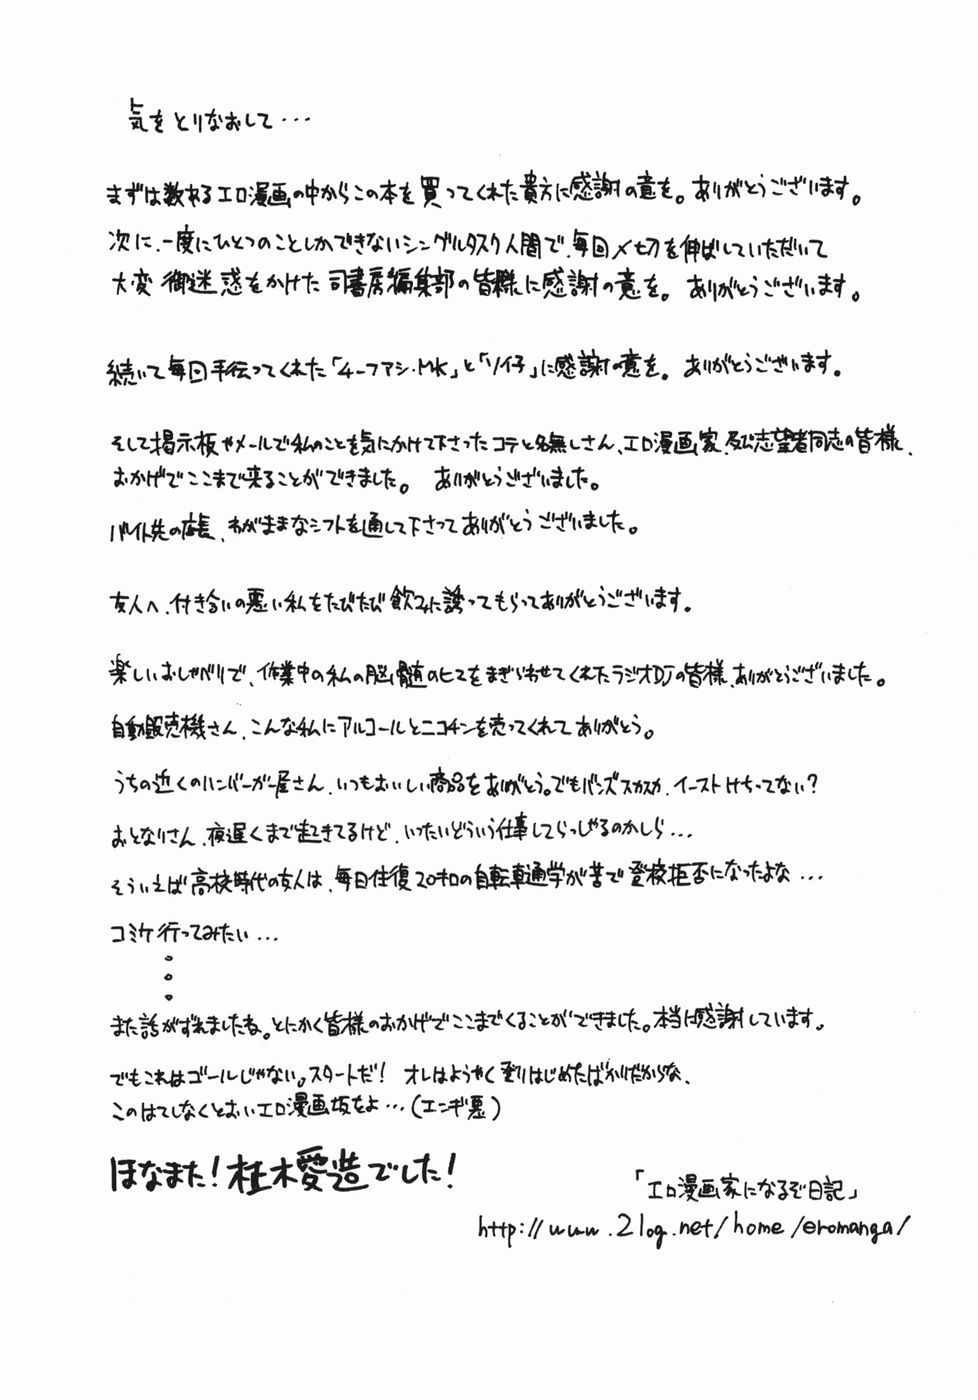 気をとりなおして・・・
まずは数あるエロ漫画の中からこの本を買ってくれた貴方に感謝の意を。ありがとうございます。
次に、一度にひとつのことしかできないシングルタスク人間で、毎回〆切を伸ばしていただいて
大変御迷惑をかけた司書房編集部の皆様に感謝の意を。ありがとうございます。
続いて毎回手伝ってくれた「4-ファシ・MK」と「ソ仔」に感謝の意を。ありがとうございます。
そして掲示板やメールで私のことを気にかけて下さったコテと名無しさん、エロ漫画家、及び志望者同志の皆様、
おかげでここまで来ることができました。ありがとうございました。
バイト先の店長、わがままなシフトを通して下さってありがとうございました。
友人へ、付き合いの悪い私をたびたび飲みに誘ってもらってありがとうございます。
楽しいおしゃべりで、作業中の私の脳髄のヒマをまぎらわせてくれたラジオDJの皆様、ありがとうございました。
自動販売機さん、こんな私にアルコールとニコチンを売ってくれてありがとう。
うちの近くのハンバーガー屋さん、いつもおいしい商品をありがとう。でもバンズスカスカ、イーストけちってない?
おとなりさん、夜遅くまで起きてるけど、いったいどういう仕事してらっしゃるのかしら・・・
そういえば高校時代の友人は、毎日往復20キロの自転車通学が苦で登校拒否になったよな・・・
コミケ行ってみたい・・・
また話がずれましたね。とにかく皆様のおかげでここまでくることができました。本当に感謝しています。
でもこれはゴールじゃない。スタートだ! オレはようやく登りはじめたばかりだからな、
このはてしなくとおいエロ漫画坂をよ・・・(エンギ悪)
ほなまた!柱木愛造でした!
「エロ漫画家になるぞ日記」
http://www.2log.net/home/eromanga/